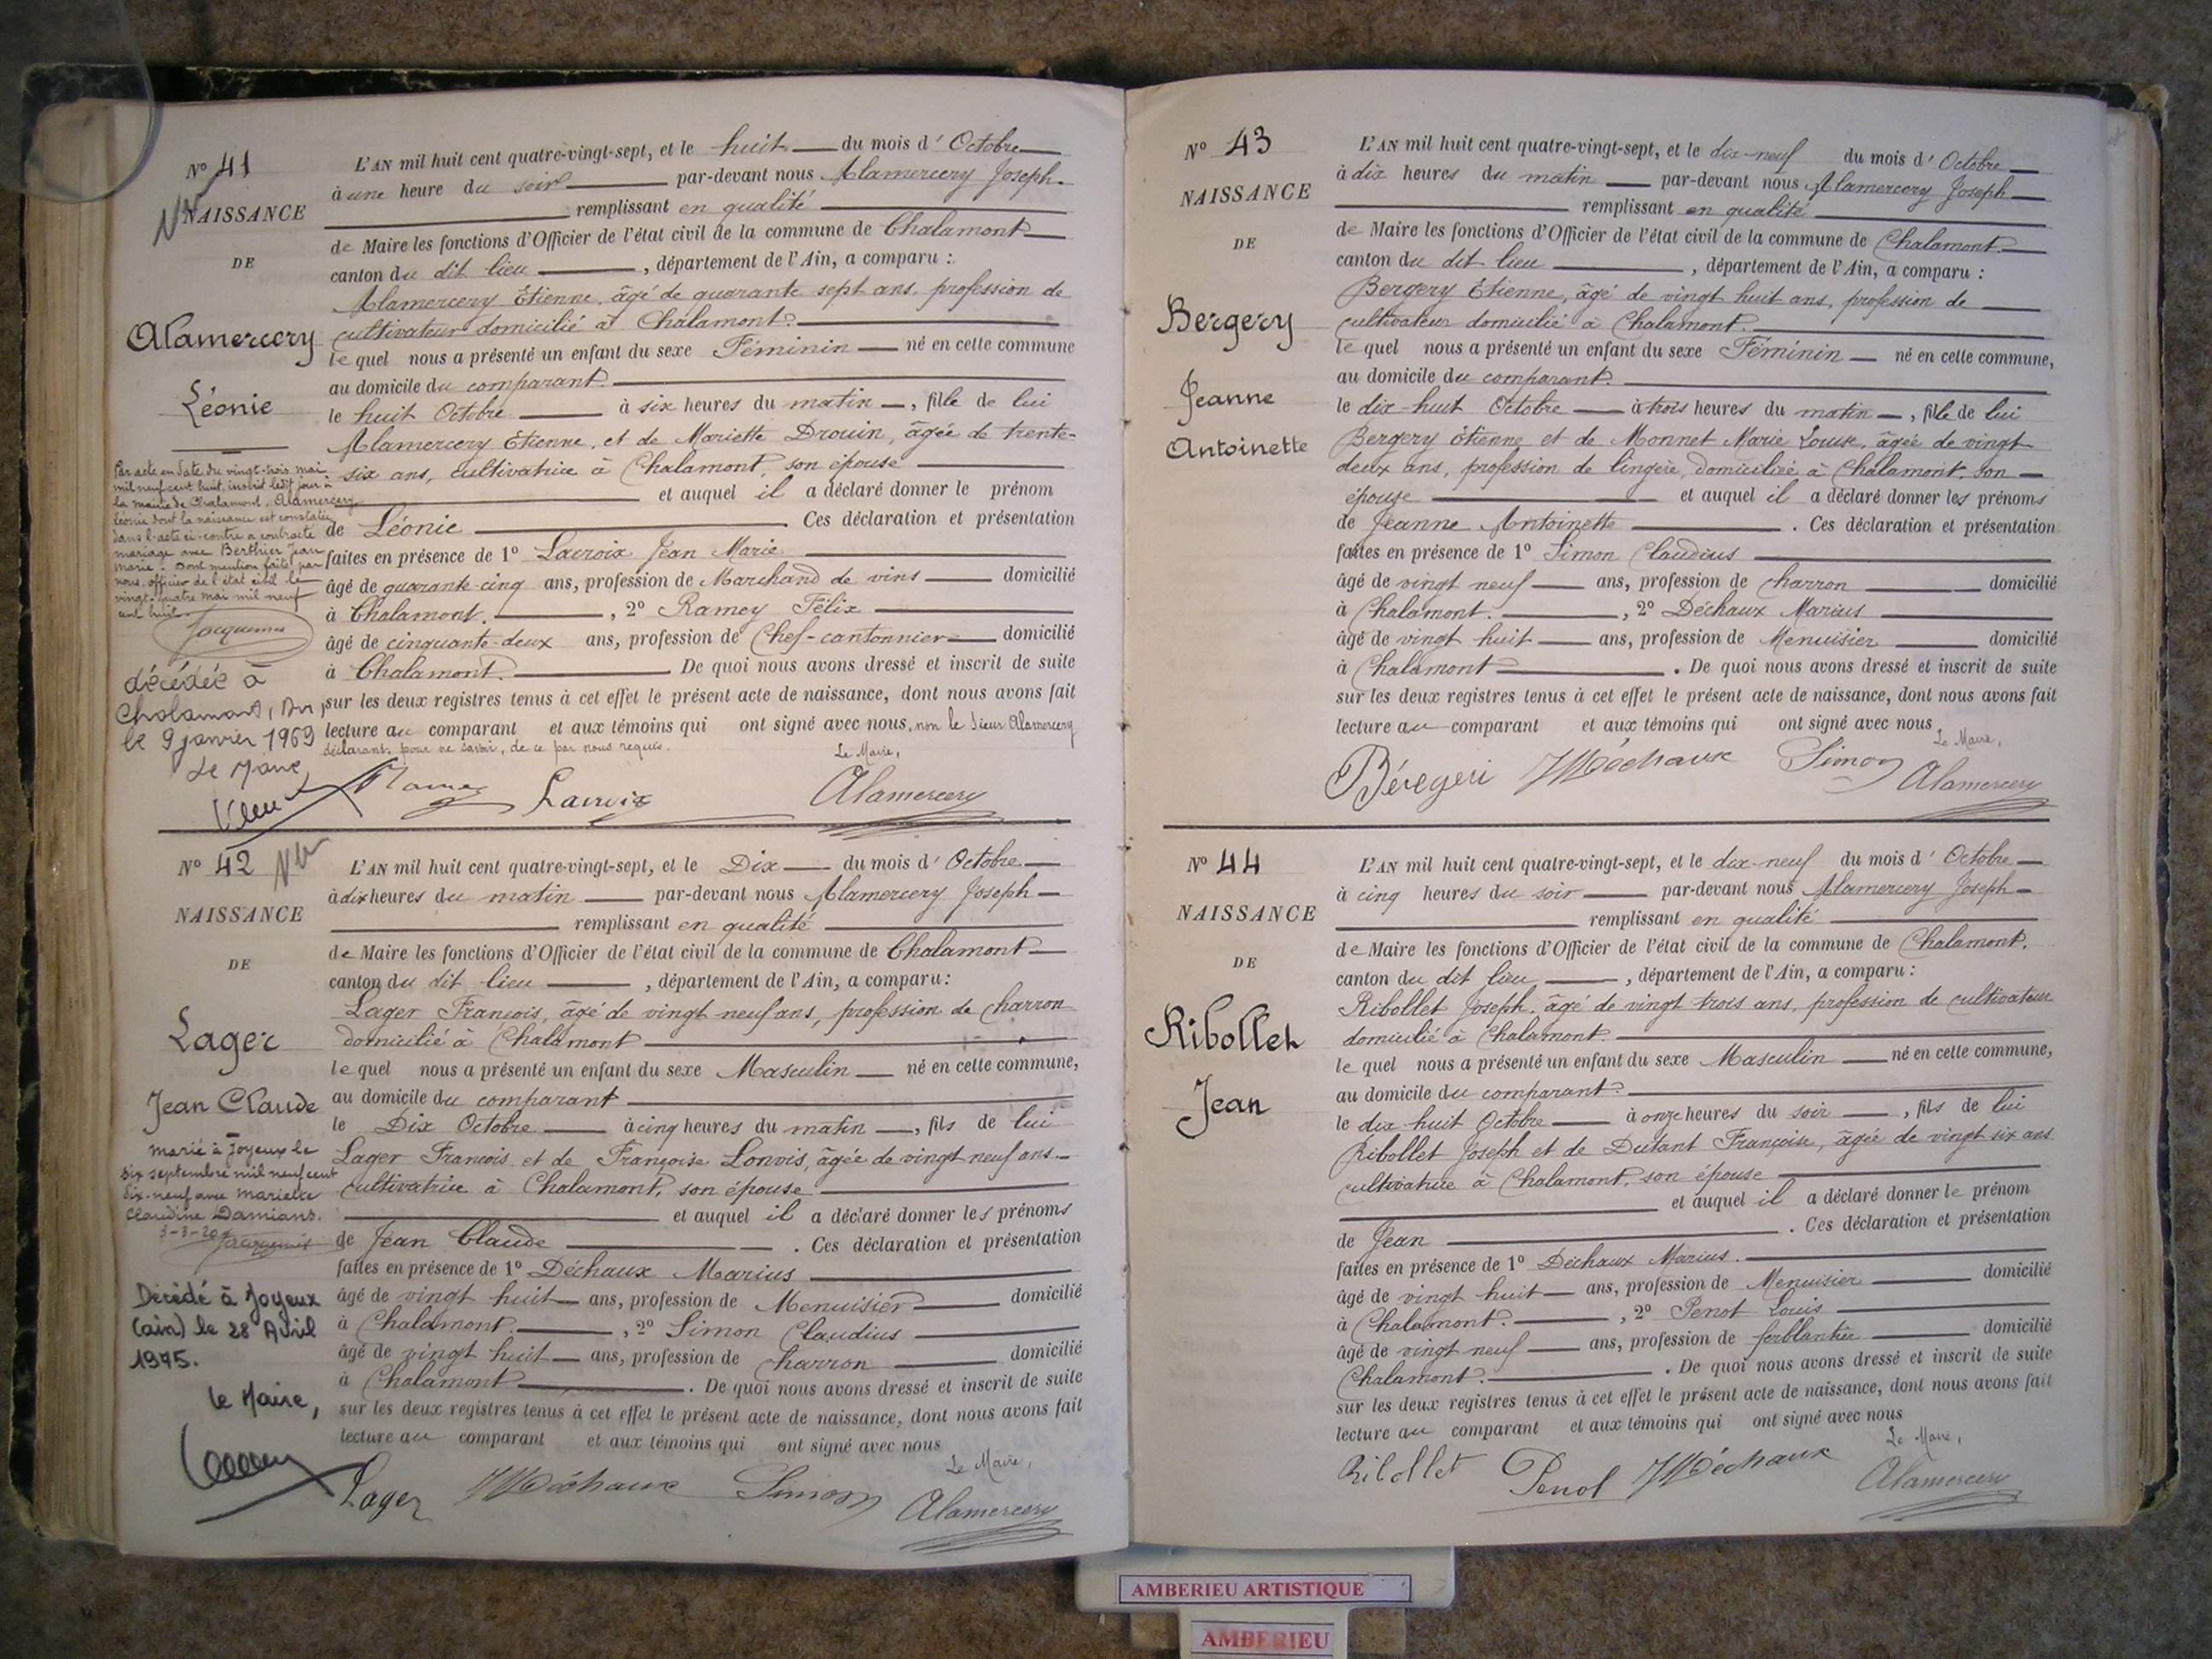 N° 41
NAISSANCE
DE
Alamercery
Léonie
Par acte en date du vingt-trois mai
mil neuf cent huit, inscrit ledit jour à
la mairie de Chalamont, Alamercery
Léonie dont la naissance est constatée
dans l'acte ci-contre a contracté
mariage avec Berthier Jean
Marie. Dont mention faite par
nous officier de l'état civil le
vingt-quatre mai mil neuf
cent huit.
décédée à
Chalamont, Ain,
le 9 janvier 1969
Le Maire
L'AN mil huit cent quatre-vingt-sept, et le huit du mois d'Octobre
à une heure du soir par-devant nous Alamercery Joseph
remplissant en qualité
de Maire les fonctions d'Officier de l'état civil de la commune de Chalamont
canton du dit lieu, département de l'Ain, a comparu :
Alamercery Etienne, âgé de quarante sept ans, profession de
cultivateur domicilié à Chalamont.
lequel nous a présenté un enfant du sexe Féminin né en cette commune
au domicile du comparant.
le huit Octobre à six heures du matin, fille de lui
Alamercery Etienne, et de Mariette Drouin, âgée de trente-
six ans, cultivatrice à Chalamont, son épouse
et auquel il a déclaré donner le prénom
de Léonie. Ces déclaration et présentation
faites en présence de 1° Lacroix Jean Marie
âgé de quarante-cinq ans, profession de Marchand de vins domicilié
à Chalamont., 2° Ramey Félix
âgé de cinquante-deux ans, profession de Chef-cantonnier domicilié
à Chalamont. De quoi nous avons dressé et inscrit de suite
sur les deux registres tenus à cet effet le présent acte de naissance, dont nous avons fait
lecture au comparant et aux témoins qui ont signé avec nous, non le sieur Alamercery
déclarant, pour ne savoir, de ce par nous requis.
Le Maire,
Lacroix Alamercery
N° 42
NAISSANCE
DE
Lager
Jean Claude
marié à Joyeux le
six septembre mil neuf cent
dix-neuf avec Mariette
Claudine Damians.
Décédé à Joyeux
(ain) le 28 Avril
1975.
le Maire,
L'AN mil huit cent quatre-vingt-sept, et le Dix du mois d'Octobre
à dix heures du matin par-devant nous Alamercery Joseph
remplissant en qualité
de Maire les fonctions d'Officier de l'état civil de la commune de Chalamont
canton du dit lieu, département de l'Ain, a comparu :
Lager François, âgé de vingt neuf ans, profession de charron
domicilié à Chalamont
lequel nous a présenté un enfant du sexe Masculin né en cette commune,
au domicile du comparant
le Dix Octobre à cinq heures du matin, fils de lui
Lager François et de Françoise Lonvis, âgée de vingt neuf ans
cultivatrice à Chalamont, son épouse
et auquel il a déclaré donner les prénoms
de Jean Claude. Ces déclaration et présentation
faites en présence de 1° Déchaux Marius
âgé de vingt huit ans, profession de Menuisier domicilié
à Chalamont., 2° Simon Claudius
âgé de vingt huit ans, profession de charron domicilié
à Chalamont. De quoi nous avons dressé et inscrit de suite
sur les deux registres tenus à cet effet le présent acte de naissance, dont nous avons fait
lecture au comparant et aux témoins qui ont signé avec nous
Le Maire,
Lager MDéchaux Simon Alamercery
N° 43
NAISSANCE
DE
Bergery
Jeanne
Antoinette
L'AN mil huit cent quatre-vingt-sept, et le dix-neuf du mois d'Octobre
à dix heures du matin par-devant nous Alamercery Joseph
remplissant en qualité
de Maire les fonctions d'Officier de l'état civil de la commune de Chalamont
canton du dit lieu, département de l'Ain, a comparu :
Bergery Etienne, âgé de vingt huit ans, profession de
cultivateur domicilié à Chalamont.
lequel nous a présenté un enfant du sexe Féminin né en cette commune,
au domicile du comparant.
le dix-huit Octobre à trois heures du matin, fille de lui
Bergery Etienne et de Monnet Marie Louise, âgée de vingt
deux ans, profession de lingère, domiciliée à Chalamont, son
épouse et auquel il a déclaré donner les prénoms
de Jeanne Antoinette. Ces déclaration et présentation
faites en présence de 1° Simon Claudius
âgé de vingt neuf ans, profession de charron domicilié
à Chalamont., 2° Déchaux Marius
âgé de vingt huit ans, profession de Menuisier domicilié
à Chalamont. De quoi nous avons dressé et inscrit de suite
sur les deux registres tenus à cet effet le présent acte de naissance, dont nous avons fait
lecture au comparant et aux témoins qui ont signé avec nous
Le Maire,
Béregeri MDéchaux Simon Alamercery
N° 44
NAISSANCE
DE
Ribollet
Jean
L'AN mil huit cent quatre-vingt-sept, et le dix-neuf du mois d'Octobre
à cinq heures du soir par-devant nous Alamercery Joseph
remplissant en qualité
de Maire les fonctions d'Officier de l'état civil de la commune de Chalamont.
canton du dit lieu, département de l'Ain, a comparu :
Ribollet Joseph, âgé de vingt trois ans, profession de cultivateur
domicilié à Chalamont.
lequel nous a présenté un enfant du sexe Masculin né en cette commune,
au domicile du comparant.
le dix-huit Octobre à onze heures du soir, fils de lui
Ribollet Joseph et de Dutant Françoise, âgée de vingt six ans
cultivatrice à Chalamont, son épouse
et auquel il a déclaré donner le prénom
de Jean. Ces déclaration et présentation
faites en présence de 1° Déchaux Marius.
âgé de vingt huit ans, profession de Menuisier domicilié
à Chalamont., 2° Penot Louis
âgé de vingt neuf ans, profession de ferblantier domicilié
Chalamont. De quoi nous avons dressé et inscrit de suite
sur les deux registres tenus à cet effet le présent acte de naissance, dont nous avons fait
lecture au comparant et aux témoins qui ont signé avec nous
Le Maire,
Ribollet Penot MDéchaux Alamercery
AMBERIEU ARTISTIQUE
AMBERIEU